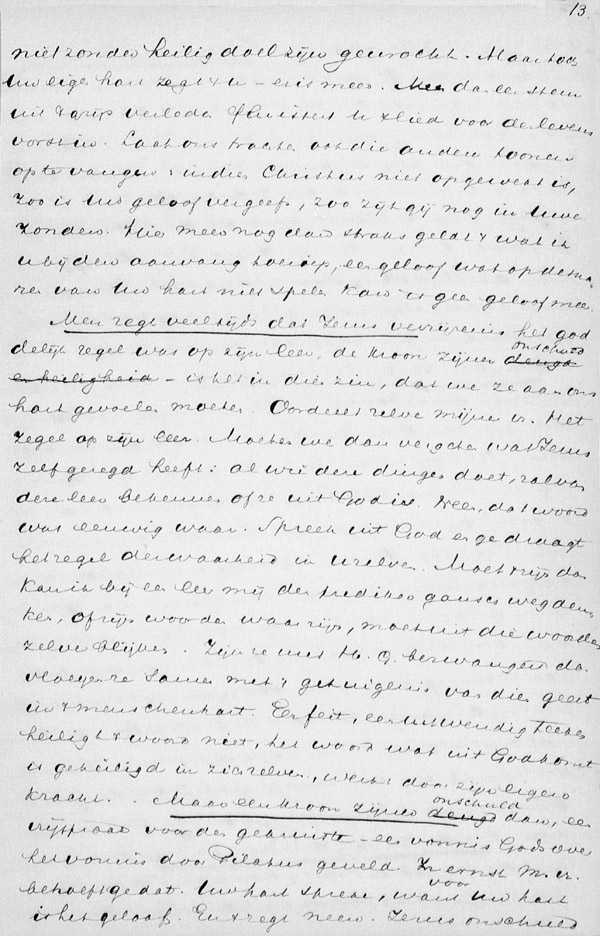 13.
niet zonder heilig doel zijn gewrocht. Maar toch
Uw eigen hart zegt u - er is meer. Men dan een stem
uit t grijs verleden fluistert u t lied voor de levens
vorst in. Laat ons trachten ook die anderen toonen
op te vangen: indien Christus niet opgewekt is,
zoo is Uw geloof vergeefs, zoo zijt gij nog in Uwe
zonden. Hier meer nog dan straks geldt t wat ik
u bij den aanvang toeriep, een geloof wat op de sna-
ren van Uw hart niet spelen kan is geen geloof meer.
Men zegt veeltijds dat Jezus verrijzenis het god
delijk zegel was op zijn leer, de kroon zijner deugd
onschuld
en heiligheid - is het in dien zin, dat we ze aan ons
hart gevoelen moeten. Oordeelt zelve mijne vr. Het
zegel op zijn leer. Moeten we dan vergeten wat Jezus
zelf gezegd heeft: al wie deze dingen doet, zal van
deze leer bekennen of ze uit God is. Neen, dat woord
was eeuwig waar. Spreek uit God en ge draagt
het zegel der waarheid in Uzelven. Moet t zijn dan
kan ik bij een leer mij den prediker gansch wegden-
ken, of zijn woorden waar zijn, moet uit die woorden
zelve blijken. Zijn ze met H. G. bezwangerd dan
vloeyen ze samen met t getuigenis van dien geest
in t menschenhart. Een feit, een uitwendig teeken
heiligt t woord niet, het woord wat uit God komt
is geheiligd in zichzelven, werkt door zijn eigen
kracht. Maar een kroon zijner deugd dan, een
onschuld
vrijspraak voor den gekruiste - een vonnis Gods over
het vonnis door Pilatus geveld. In ernst M. vr.
behoeft ge dat. Uw hart spreke, want Uw hart
voor
is het geloof. En t zegt neen. Jezus onschuld